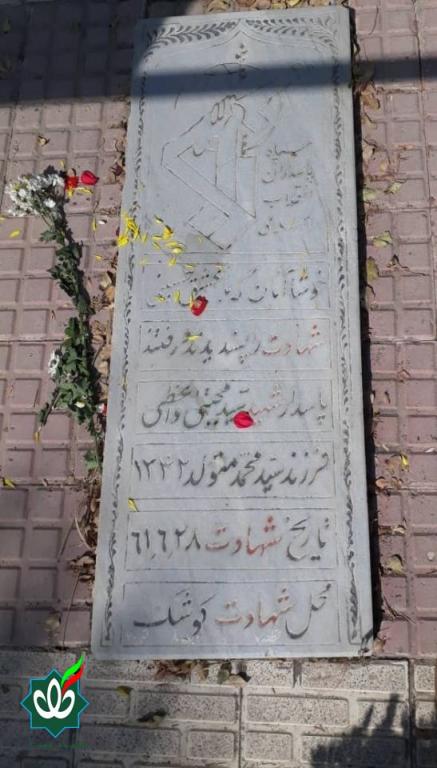 سپاه
پاسداران
انقلاب
اسلامی
شهادت را پسندیدند رفتند
پاسدار شهید سید مجتبی واعظی
فرزند سید محمد متولد ۱۳۴۲
تاریخ شهادت ۶۱٫۶٫۲۸
محل شهادت کوشک